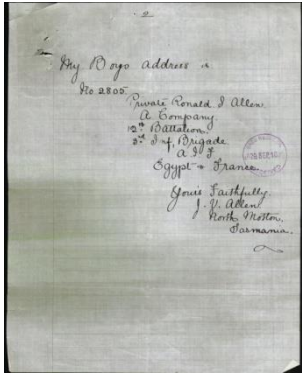 2
My Boys address is
No 2805
Private Ronald. J Allen
A Company
12th Battalion
3rd Inf. Brigade
A I F
Egypt or France
Yours Faithfully
J. V. Allen
North Motton
Tasmania.